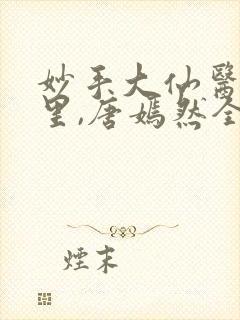 妙手大仙醫
里,唐嫣然全
煙末